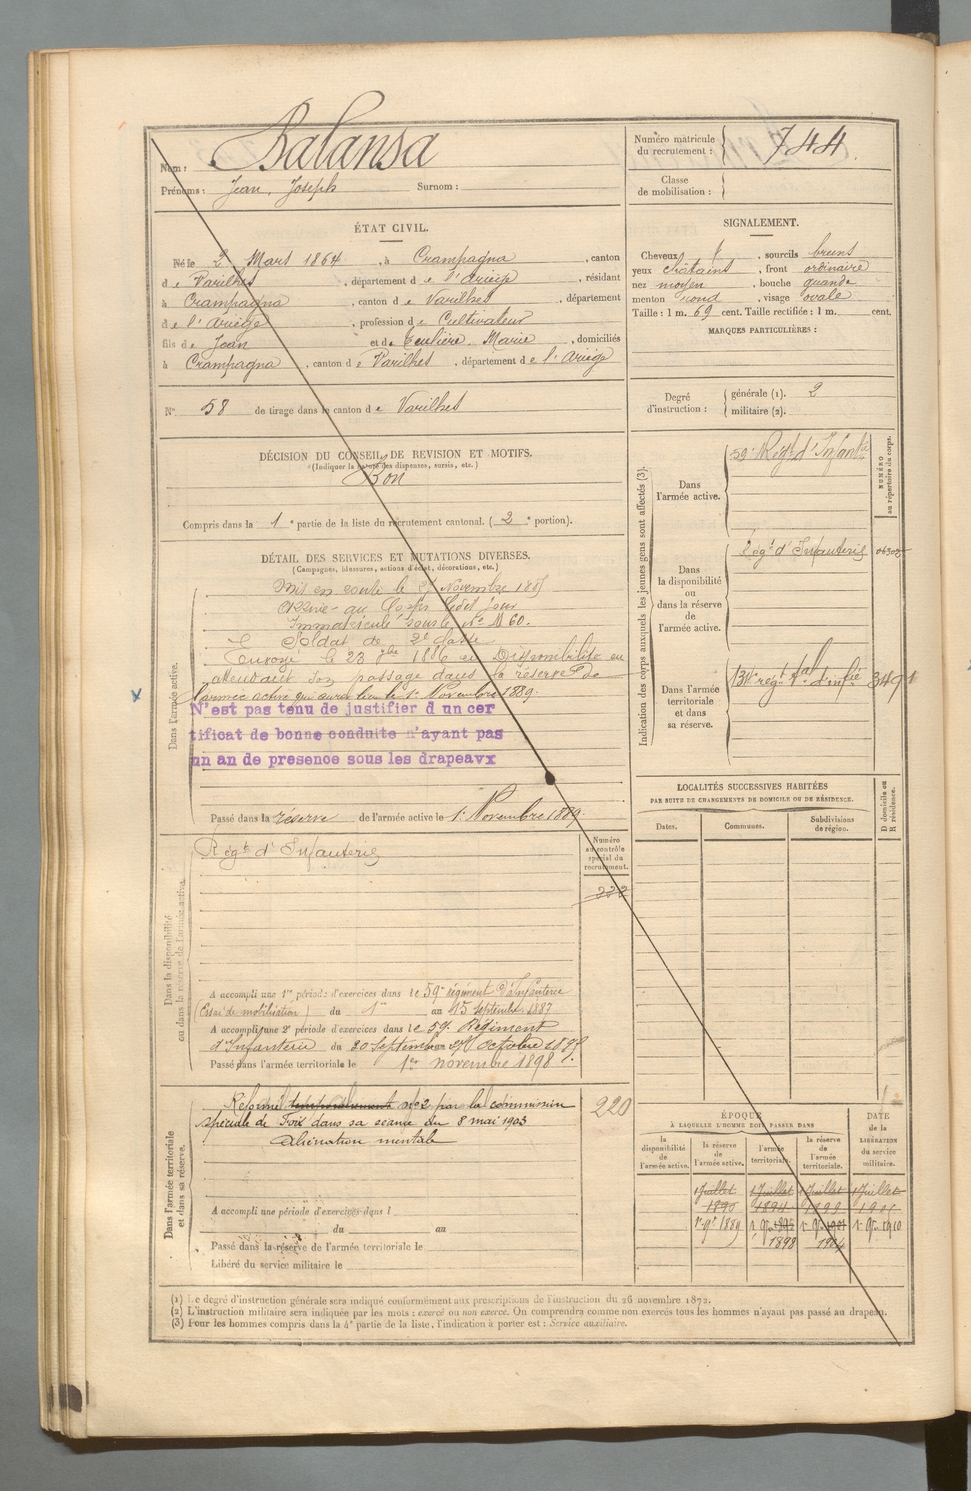 Nom : Balansa
Prénoms : Jean, Joseph Surnom :
Numéro matricule du recrutement : 744.
Classe de mobilisation :
ÉTAT CIVIL.
Né le 2 Mars 1864, à Crampagna, canton
de Varilhes, département de l'Ariège, résidant
à Crampagna, canton de Varilhes, département
de l'Ariège, profession de Cultivateur
fils de Jean et de Teulière, Marie, domiciliés
à Crampagna, canton de Varilhes, département de l'Ariège
N° 58 de tirage dans le canton de Varilhes
SIGNALEMENT.
Cheveux et, sourcils bruns
yeux châtains, front ordinaire
nez moyen, bouche grande
menton rond, visage ovale
Taille : 1 m. 69 cent. Taille rectifiée : 1 m. cent.
MARQUES PARTICULIÈRES :
Degré d'instruction : générale (1). 2
militaire (2).
DÉCISION DU CONSEIL DE REVISION ET MOTIFS.
(Indiquer la nature des dispenses, sursis, etc.)
Bon
Compris dans la 1e partie de la liste du recrutement cantonal. ( 2e portion).
DÉTAIL DES SERVICES ET MUTATIONS DIVERSES.
(Campagnes, blessures, actions d'éclat, décorations, etc.)
Dans l'armée active.
Mis en route le 27 Novembre 1885
Arrivé au Corps ledit jour
Immatriculé sous le N° 1160.
Soldat de 2e classe
Envoyé le 23 9bre 1886 en Disponibilité en
attendant son passage dans la réserve de
l'armée active qui aura lieu le 1er Novembre 1889.
N'est pas tenu de justifier d un cer
tificat de bonne conduite n'ayant pas
un an de presence sous les drapeavx
Passé dans la réserve de l'armée active le 1er Novembre 1889.
Dans la disponibilité ou dans la réserve de l'armée active.
Régt d'Infanterie
Numéro au contrôle spécial du recrutement.
222
A accompli une 1re période d'exercices dans le 59e régiment d'Infanterie
(Essai de mobilisation) du 1er au 15 Septembre 1887
A accompli une 2e période d'exercices dans le 59e Régiment
d'Infanterie du 30 Septembre au 27 Octobre 1891.
Passé dans l'armée territoriale le 1er novembre 1898.
Dans l'armée territoriale et dans sa réserve.
Réformé temporairement n°2 par la commission
spéciale de Foix dans sa séance du 8 mai 1903
aliénation mentale
220
A accompli une période d'exercices dans l
du au
Passé dans la réserve de l'armée territoriale le
Libéré du service militaire le
Indication des corps auxquels les jeunes gens sont affectés (3).
NUMÉRO au répertoire du corps.
Dans l'armée active. 59e Régt d'Infantie
Dans la disponibilité ou dans la réserve de l'armée active. Régt d'Infanterie
Dans l'armée territoriale et dans sa réserve. 134e régt tal d'infie 3491
LOCALITÉS SUCCESSIVES HABITÉES
PAR SUITE DE CHANGEMENTS DE DOMICILE OU DE RÉSIDENCE.
D domicile ou R résidence.
Dates. Communes. Subdivisions de région.
ÉPOQUE
À LAQUELLE L'HOMME DOIT PASSER DANS
DATE de la LIBÉRATION du service militaire.
la disponibilité de l'armée active. la réserve de l'armée active. l'armée territoriale. la réserve de l'armée territoriale.
1 Juillet 1 Juillet 1 Juillet 1 Juillet
1890 1894 1899 1905
1er 9re 1889 1er 9re 1895 1er 9re 1901 1er 9re 1910
1898 1904
(1) Le degré d'instruction générale sera indiqué conformément aux prescriptions de l'instruction du 26 novembre 1872.
(2) L'instruction militaire sera indiquée par les mots : exercé ou non exercé. On comprendra comme non exercés tous les hommes n'ayant pas passé au drapeau.
(3) Pour les hommes compris dans la 4e partie de la liste, l'indication à porter est : Service auxiliaire.